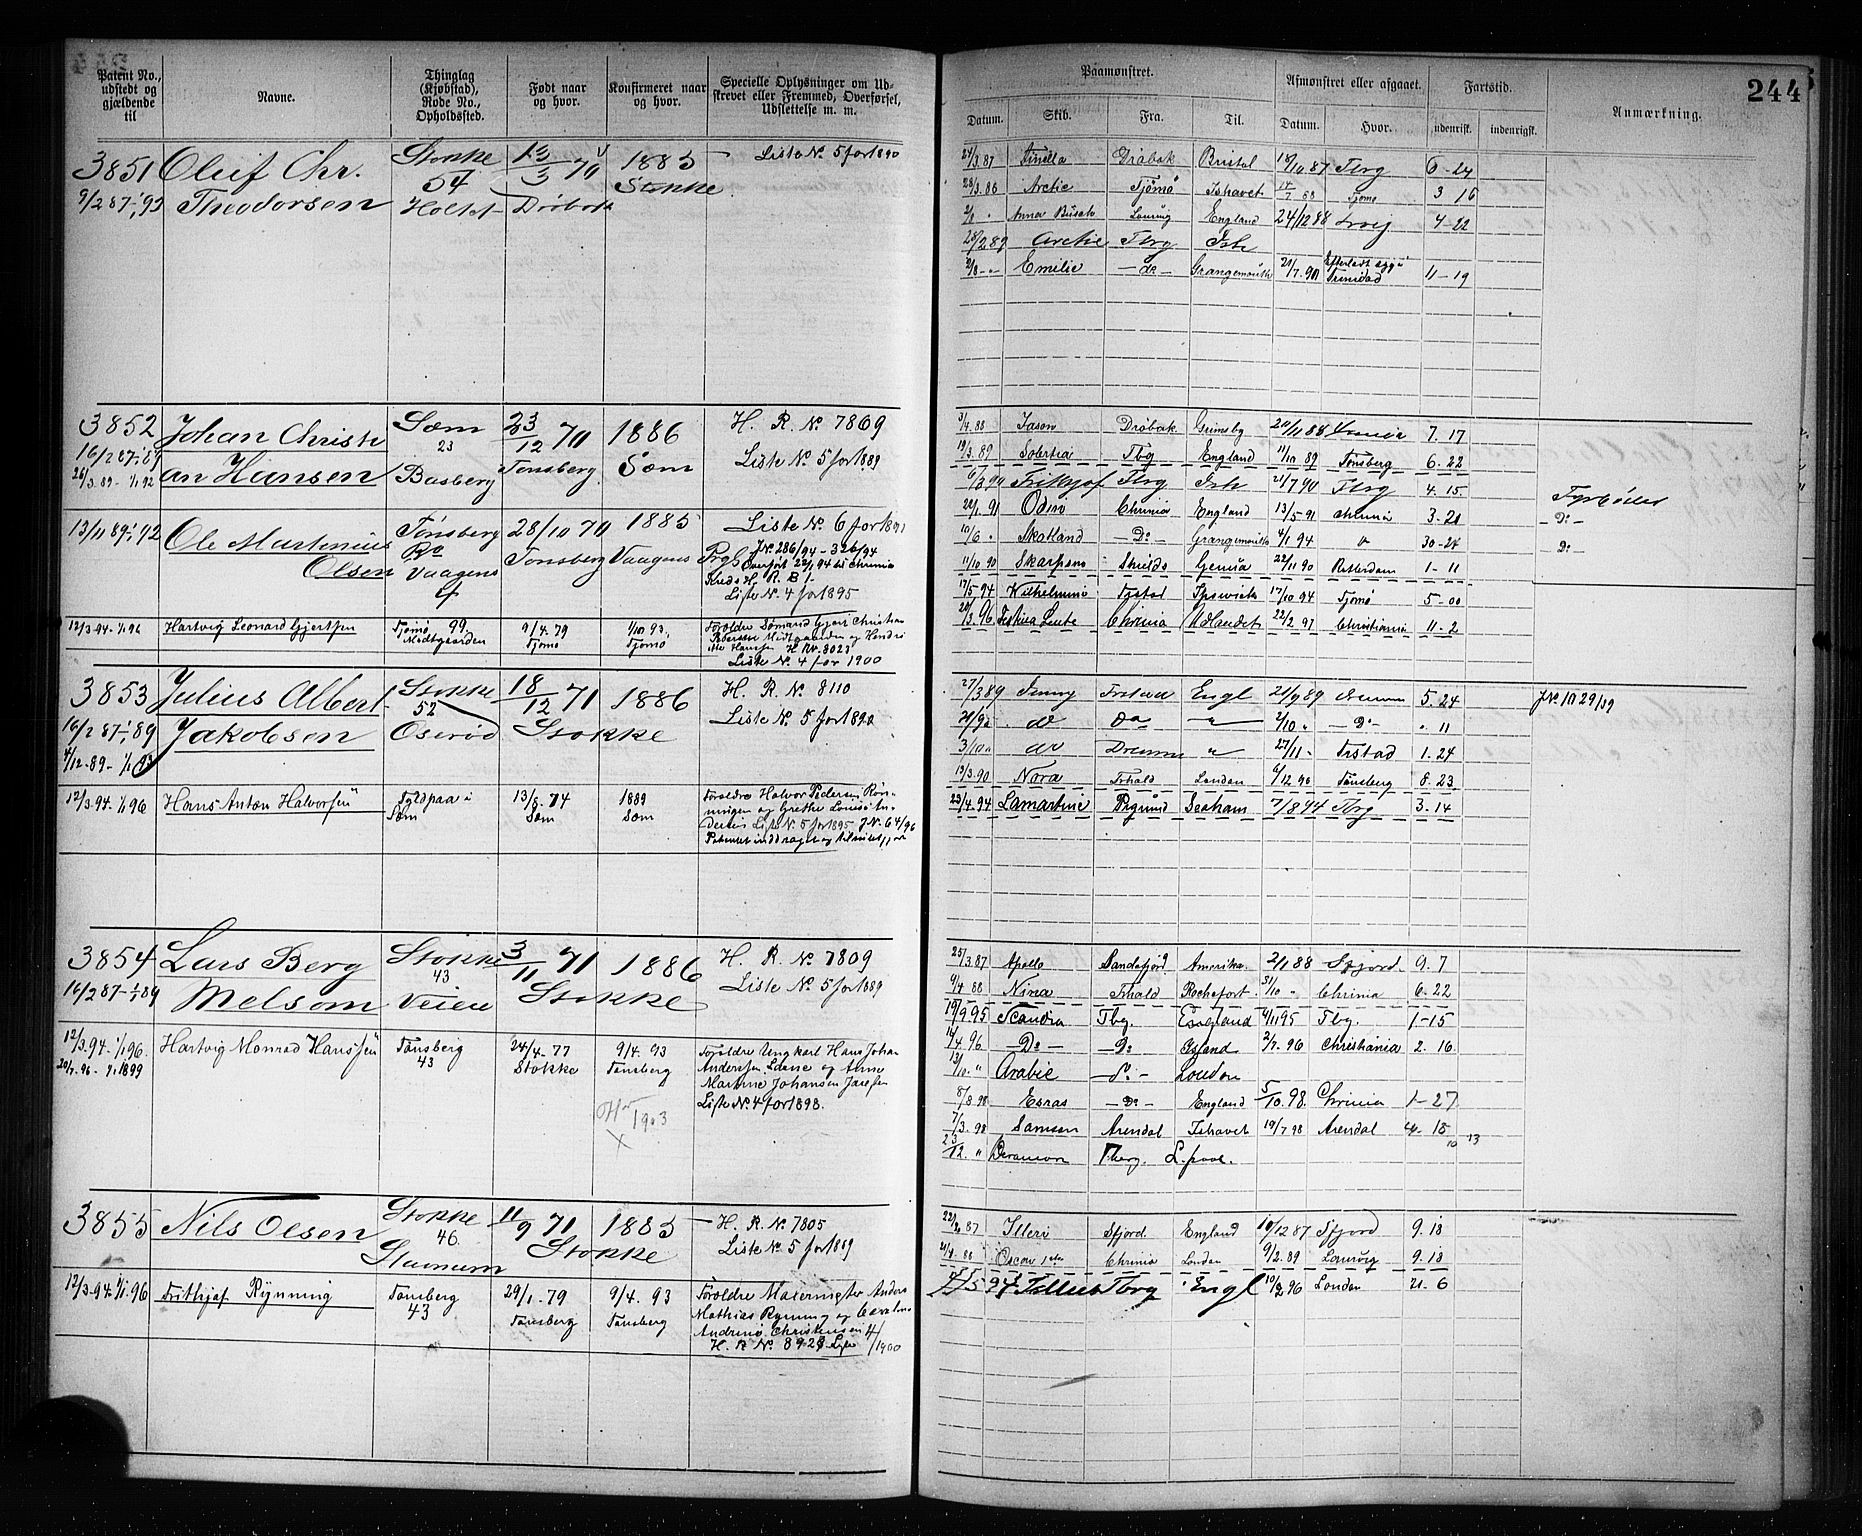 Patent No., udstedt og gjældende til
Navne.
Thinglag (Kjøbstad), Rode No., Opholdssted.
Født naar og hvor.
Konfirmeret naar og hvor.
Specielle Oplysninger om Udskrevet eller Fremmed, Overførsel, Udslettelse m. m.
3851 Oluf Chr. Stokke 13/3 70 1885 Liste No. 5 for 1890
9/2 87-1/1 93 Theodorsen 54 Holtet Drøbak Stokke
3852 Johan Christi Sæm 23/12 70 1886 H. R. No 7869
16/2 87-1/1 89 an Hansen 23 Tønsberg Sæm Liste No. 5 for 1889
28/3 89-1/1 92 Basberg
13/11 89-1/1 92 Ole Martinius Tønsberg 28/10 70 1885 Liste No. 6 for
Olsen Vaagens Tønsberg Vaagens JNo 286/94-326/94
Overført 22/1 94 til Chrinia
Kreds H. R. B 1-
Liste No. 4 for 1895
12/3 94-1/1 96 Hartvig Leonard Gjertsen Tjømø 99 9/4. 79 1/10 93, Forældre Sømand Gjert Christian
Midtgaarden Tjømø Tjømø Pedersen Midtgaarden og Henri
tte Hansen H R No 8023
Liste No. 4 for 1900
3853 Julius Albert Stokke 18/12 71 1886 H. R. No 8110
16/2 87-1/1 89 Jakobsen 52 Stokke Liste No. 5 for
4/12-89-1/1 93 Oserød
12/3 94. 1/1 96 Hans Anton Halvorsen Fyldpaa i 13/5-74 1889 Forældre Halvor Pedersen Røn-
Sæm Sæm Sæm ningen og Grethe Louise An-
dersen Liste No. 5 for 1895 JNo. 64/96
Patentet inddraget og
3854 Lars Berg Stokke 3/11 71 1886 H. R. No 7809
16/2 87-1/1 89 Melsom 43 Veien Stokke Liste No. 5 for 1889
12/3 94-1/1 96. Hartvig Monrad Hanssen Tønsberg 24/4-77 9/4. 93 Forældre Ungkarl Hans Johan
20/7. 96- 1/1 1899 43 Stokke Tønsberg Anderssen og Anne
Martine Johansen
Liste No. 4 for 1898.
1903
X
3855 Nils Olsen Stokke 11/9 71 1885 H. R. No. 7805
46. Stokke Liste No. 5 for 1889
12/3 94. 1/1 96 Frithjof Rynning Tønsberg 29/1. 79 9/4. 93 Forældre Malermester Anders
43 Tønsberg Tønsberg Mathias Rynning og
Andrine Christensen 4/1900
H. R No. 8929 Liste
244
Paamønstret.
Afmønstret eller afgaaet.
Fartstid.
Anmærkning.
Datum. Skib. Fra. Til. Datum. Hvor. udenrisk. indenrigsk.
24/3. 87 Drøbak Bristol 18/10 87 Tbrg 6-24
28/3. 88 Arctic Tjømø Ishavet 14/7 88 Tjømø 3 16
Anna England 24/12 88 4-22
28/2 89 Arctic Tbrg Ish
Emilie - do - Grangemouth 21/7. 90 Trinidad 11-19
3/4. 88 Jason Drøbak Grimsby 20/11 88 7. 17
19/3. 89 Tbg England 11/10 89 Tønsberg 6-22
6/3 90 Frithjof Tbrg Ish 21/7 90 Tbrg 4. 15 Fyrbøder
22/1. 91 Odin Chrinia England 13/5-91 Chrinia 3-20 - Do -
10/6 " Skotland - Do - Grangemouth 4/1 94 30-24 Do
11/10 90 Skarpsno Shields Genua 22/11 90 Rotterdam 1-11
17/5-94 Wilhelmine Ipswich 17/10 94 Tjømø 5-00
20/3. 96 Chrinia Udlandet 22/2. 97 Christiania 11-2
27/3 89 Engl 21/9 89 5. 24 JNo 1029/89
do Do " 2/10 " - Do - " 11
3/10 " do " 27/11 - 1. 24
13/3. 90 Nora Frhald London 6/12 90 Tønsberg 8. 23
23/4. 94 Lamartine Seaham 7/8 94 Tbrg 3-14
25/3. 87 Apollo Sandefjord Amerika. 2/1 88 Sfjord. 9. 7
9/4 88 Nina Frhald Rochefort 31/10 - Chrinia 6-22
19/9. 95 Scandia Tbg. England 4/11 95 Tbg. 1-15
14/4. 96 - Do - - Do Island 2/7. 96 Christiania 2. 16
13/10. " Arabic - Do - London
8/8. 98 Esras - Do - England 5/10. 98. Chrinia 1-27
7/3. 98 Samson Arendal Ishavet 19/7 98 Arendal 4. 15
23/12. " Tberg. L.pool.
22/2 87 Sfjord. England 10/12 87 Sfjord 9. 18
Oscar Chrinia London 9/2. 89 Laurvig 9. 18
Tellus Tbrg Engl 10/2 96 London 21. 6